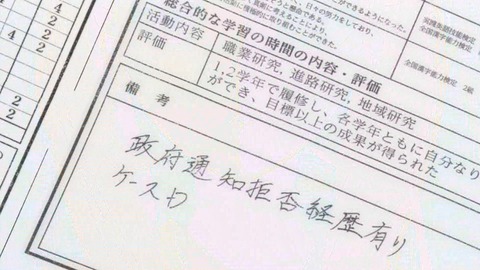 できるようになった。
、日々の努力をしており、
に感心である。
真剣に考えることにより、
活動に積極的に取り組むことができた。
総合的な学習の時間の内容・評価
活動内容
職業研究, 進路研究, 地域研究
評価
1, 2学年で履修し、各学年ともに自分なり
ができ、目標以上の成果が得られた
実践英語技能検定
全国漢字能力検定
全国漢字能力検定 2級
4
2
4
4
2
2
2
備考
政府通知拒否経歴有り
ケースD